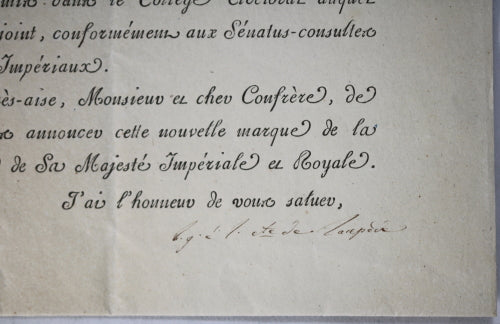 dans le Collége Electoral auquel
joint, conformément aux Sénatus-consultes
Impériaux.
ès-aise, Monsieur et cher Confrère, de
annoncer cette nouvelle marque de la
de Sa Majesté Impériale et Royale.
J'ai l'honneur de vous saluer,
de